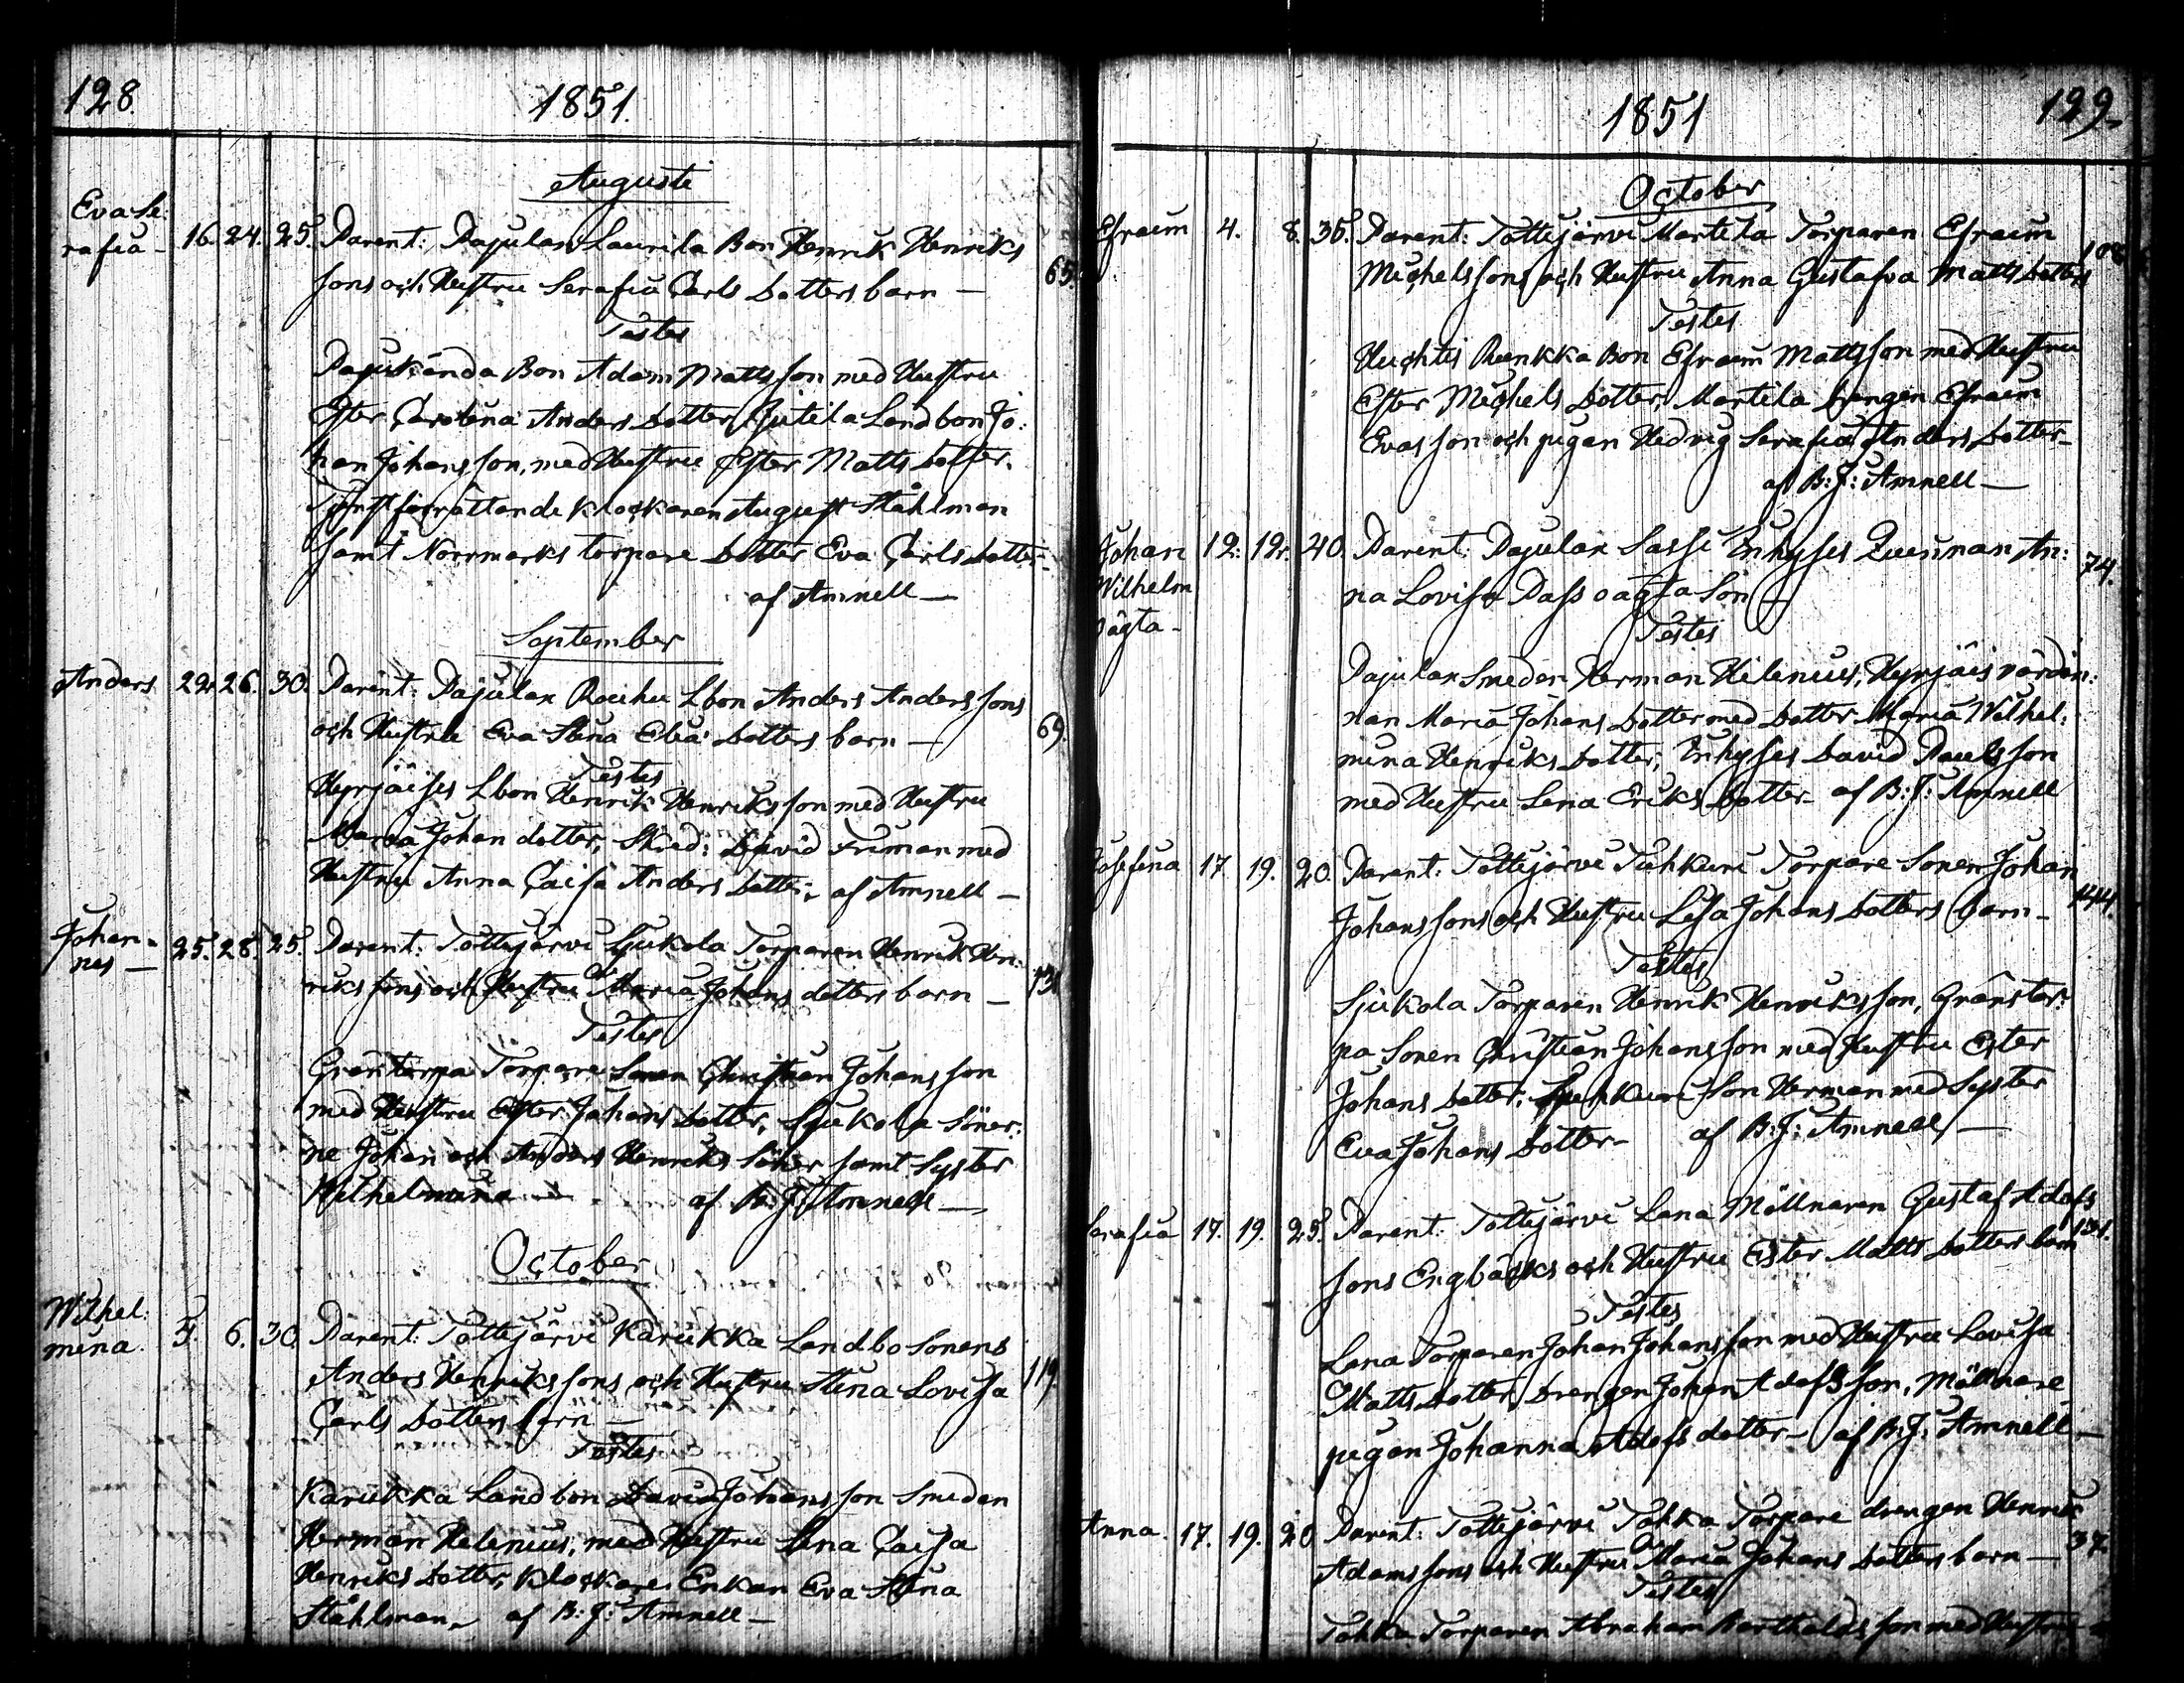 128.
1851.
Augusti
Eva Se:
rafia - 16. 24. 25. Parent: Pajulax Laurila Bon Henrik Henriks
sons och Hustru Serafia Carls dotters barn — 65.
Testes
Pajukanda Bon Adam Mattsson med Hustru
Ester Carolina Anders dotter, Landbon Jo:
han Johansson, med Hustru Ester Matts dotter,
Tjenstförrättande klockaren August Ståhlman
samt Norrmarks torpare dotter Eva Carls dotter -
af Amnell —
September
Anders 22. 26. 30. Parent: Pajulax Rouhu Lbon Anders Anders sons
och Hustru Eva Stina Elia dotters barn — 69.
Testes
Hyrjäises Lbon Henrik Henriksson med Hustru
Maria Johan dotter, Skräd: David Friman med
Hustru Anna Caisa Anders dotter, af Amnell —
Johan-
nes — 25. 28. 25. Parent: Tottijärvi Sjukola Torparen Henrik Hen:
riks sons och Hustru Maria Johans dotters barn —
Testes
Grantorpa Torpare Sonen Christian Johansson
med Hustru Ester Johans dotter, Sjukola Söner:
ne Johan och Anders Henriks Söner samt Syster
Wilhelmina — af B. J: Amnell —
October
Wilhel:
mina. 5. 6. 30. Parent: Tottijärvi Karukka Landbo Sonens
Anders Henriks sons och Hustru Stina Lovisa 119.
Carls dotters barn —
Testes
Karukka Landbon David Johansson Smeden
Herman Helenius, med Hustru Lena Caisa
Henriks dotter, klockare Enkan Eva Stina
Ståhlman, af B: J: Amnell —
1851
129.
October
Efraim 4. 8. 35. Parent: Tottijärvi Martila Torparen Efraim
Michels sons och Hustru Anna Gustafva Matts dotters 108
Testes
Huchtis Runkka Bon Efraim Mattsson med Hustru
Ester Michels dotter, Martila drengen Efraim
Evasson och pigan Hedvig Serafia Anders dotter -
af B: J: Amnell —
Johan 12. 12. 40. Parent: Pajulax Sassi Inhyses Qvinnan An: 74.
Wilhelm
oägta - na Lovisa Pass oägta Son —
Testes
Pajulax Smeden Herman Hilenius, Hyrjäis värdin:
nan Maria Johans dotter med dotter Maria Wilhel:
mina Henriks dotter, Inhyses David Paulsson
med Hustru Lena Eriks dotter - af B: J: Amnell
Josefina 17. 19. 20. Parent: Tottijärvi Tuhkuri Torpare Sonen Johan
Johans sons och Hustru Lisa Johans dotters barn - 144.
Testes
Sjukola Torparen Henrik Henriksson, Gränstor:
pa Sonen Christian Johansson med Hustru Ester
Johans dotter, Son Herman med Syster
Eva Johans dotter - af B: J: Amnell —
Serafia 17. 19. 25. Parent: Tottijärvi Lana Möllnaren Gustaf Adolfs
sons Engbäcks och Hustru Ester Matts dotters barn 131.
Testes
Lana Torparen Johan Johansson med Hustru Lovisa
Matts dotter, drengen Johan Adolfsson, Möllnare
pigan Johanna Adolfs dotter - af B: J: Amnell —
Anna. 17. 19. 20 Parent: Tottijärvi Tohka Torpare drengen Henrik
Adams sons och Hustru Maria Johans dotters barn — 37.
Testes
Tohka Torparen Abraham Bartholdsson med Hustru